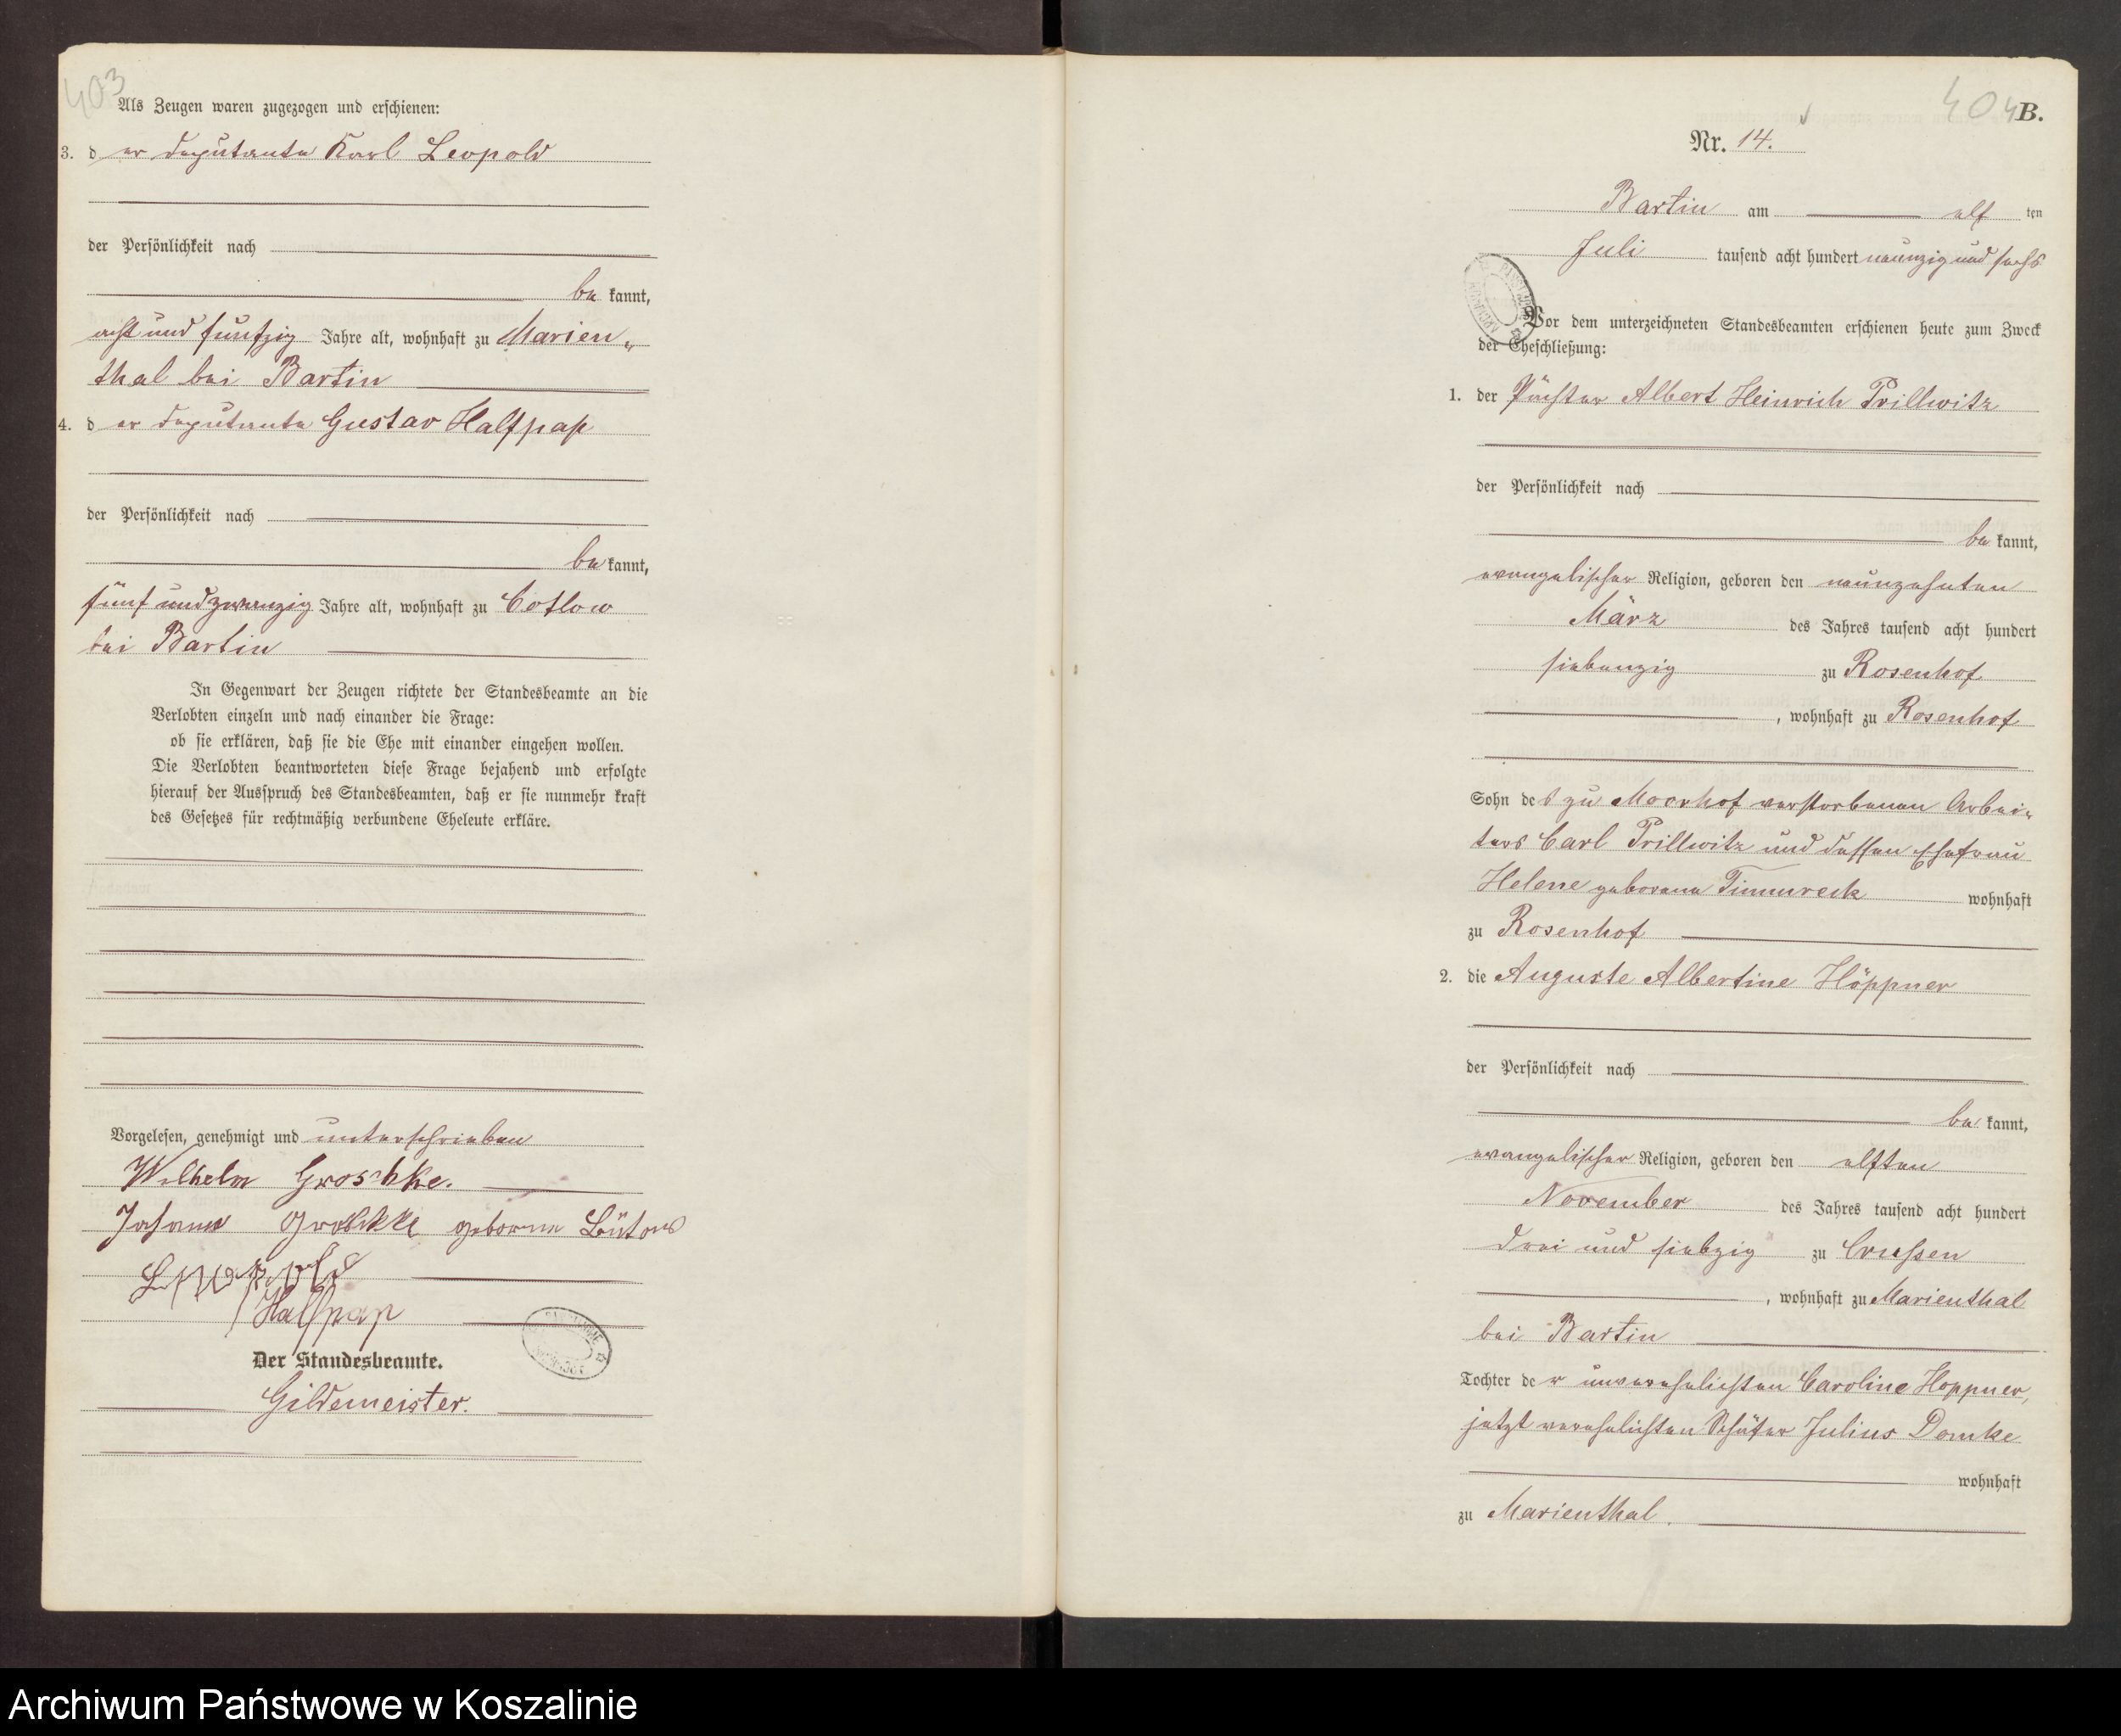 403
Als Zeugen waren zugezogen und erschienen:
3. der Deputante Karl Leopold
der Persönlichkeit nach
bekannt,
acht und fünfzig Jahre alt, wohnhaft zu Marien-
thal bei Bartin
4. der Deputante Gustav Halfpap
der Persönlichkeit nach
bekannt,
fünf und zwanzig Jahre alt, wohnhaft zu Cotlow
bei Bartin
In Gegenwart der Zeugen richtete der Standesbeamte an die
Verlobten einzeln und nach einander die Frage:
ob sie erklären, daß sie die Ehe mit einander eingehen wollen.
Die Verlobten beantworteten diese Frage bejahend und erfolgte
hierauf der Ausspruch des Standesbeamten, daß er sie nunmehr kraft
des Gesetzes für rechtmäßig verbundene Eheleute erkläre.
Vorgelesen, genehmigt und unterschrieben
Wilhelm Groschke.
geborne
Leopold
Halfpap
Der Standesbeamte.
Gildemeister.
404 B.
Nr. 14.
Bartin am elf ten
Juli tausend acht hundert neunzig und sechs
Vor dem unterzeichneten Standesbeamten erschienen heute zum Zweck
der Eheschließung:
1. der Pächter Albert Heinrich Prillwitz
der Persönlichkeit nach
bekannt,
evangelischer Religion, geboren den neunzehnten
März des Jahres tausend acht hundert
siebenzig zu Rosenhof
, wohnhaft zu Rosenhof
Sohn des zu Moorhof verstorbenen Arbei-
ters Carl Prillwitz und dessen Ehefrau
Helene geborene Timmreck wohnhaft
zu Rosenhof
2. die Auguste Albertine Höppner
der Persönlichkeit nach
bekannt,
evangelischer Religion, geboren den elften
November des Jahres tausend acht hundert
drei und siebzig zu Crussen
, wohnhaft zu Marienthal
bei Bartin
Tochter der unverehelichten Caroline Hoppner,
jetzt verehelichten Schäfer Julius Domke
wohnhaft
zu Marienthal.
Archiwum Państwowe w Koszalinie